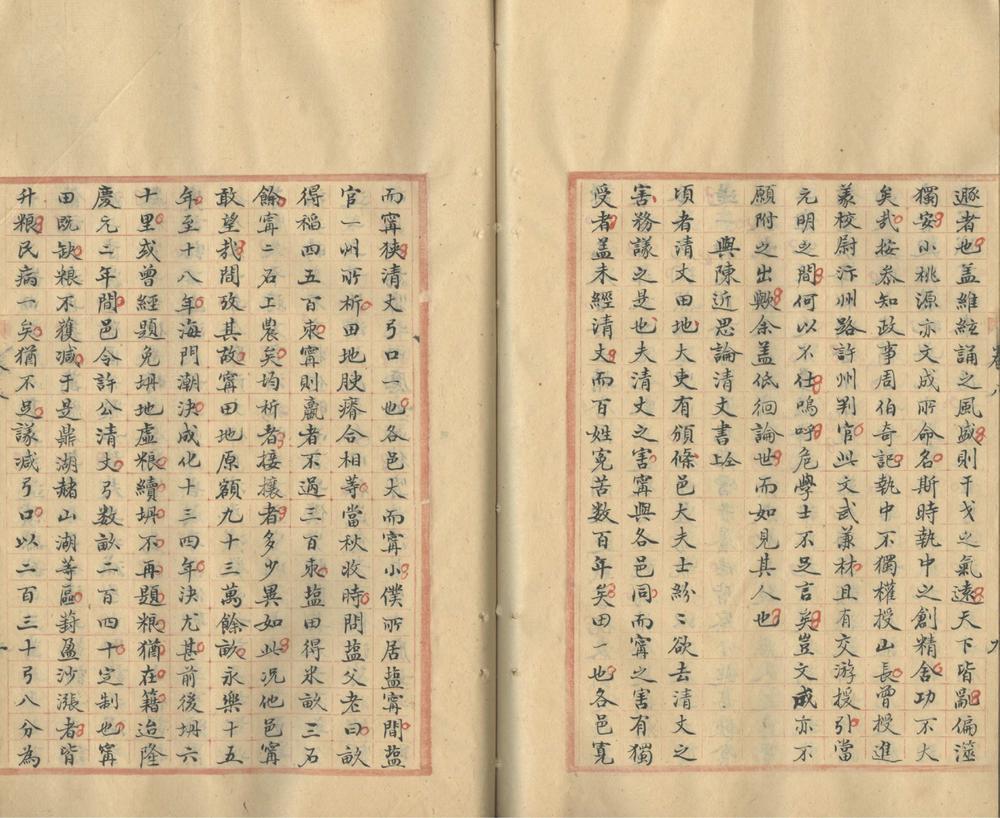 遯者也盖維絃誦之風盛則干戈之氣遠天下皆亂偏澨
獨安小桃源亦文成所命名斯時執中之創精舍功不大
矣哉按叅知政事周伯奇記執中不獨權授山長曾授進
義校尉汴州路許州判官此文武兼材且有交游援引當
元明之間何以不仕嗚呼危學士不足言矣豈文成亦不
願附之出歟余盖低徊論世而如見其人也
與陳近思論清丈書 仝上
頃者清丈田地大吏有頒條邑大夫士紛〻欲去清丈之
害務議之是也夫清丈之害寗與各邑同而寗之害有獨
受者盖未經清丈而百姓寃苦数百年矣田一也各邑寛
而寗狹清丈弓口一也各邑大而寗小僕所居塩寗間塩
官一州所析田地腴瘠合相等當秋收時問塩父老曰畝
得稲四五百朿寗則羸者不過三百朿塩田得米畝三石
餘寗二石工農矣均析者接攘者多少異如此况他邑寗
敢望哉間攷其故寗田地原額九十三萬餘畝永樂十五
年至十八年海門潮決成化十三四年決尤甚前後坍六
十里或曾經題免坍地虛粮續坍不再題粮猶在籍迨隆
慶元二年間邑令許公清丈弓数畝二百四十定制也寗
田既缺粮不獲减于是鼎湖赭山湖荨區葑盈沙漲者皆
升粮民病一矣猶不足議减弓口以二百三十弓八分為
卷八
九